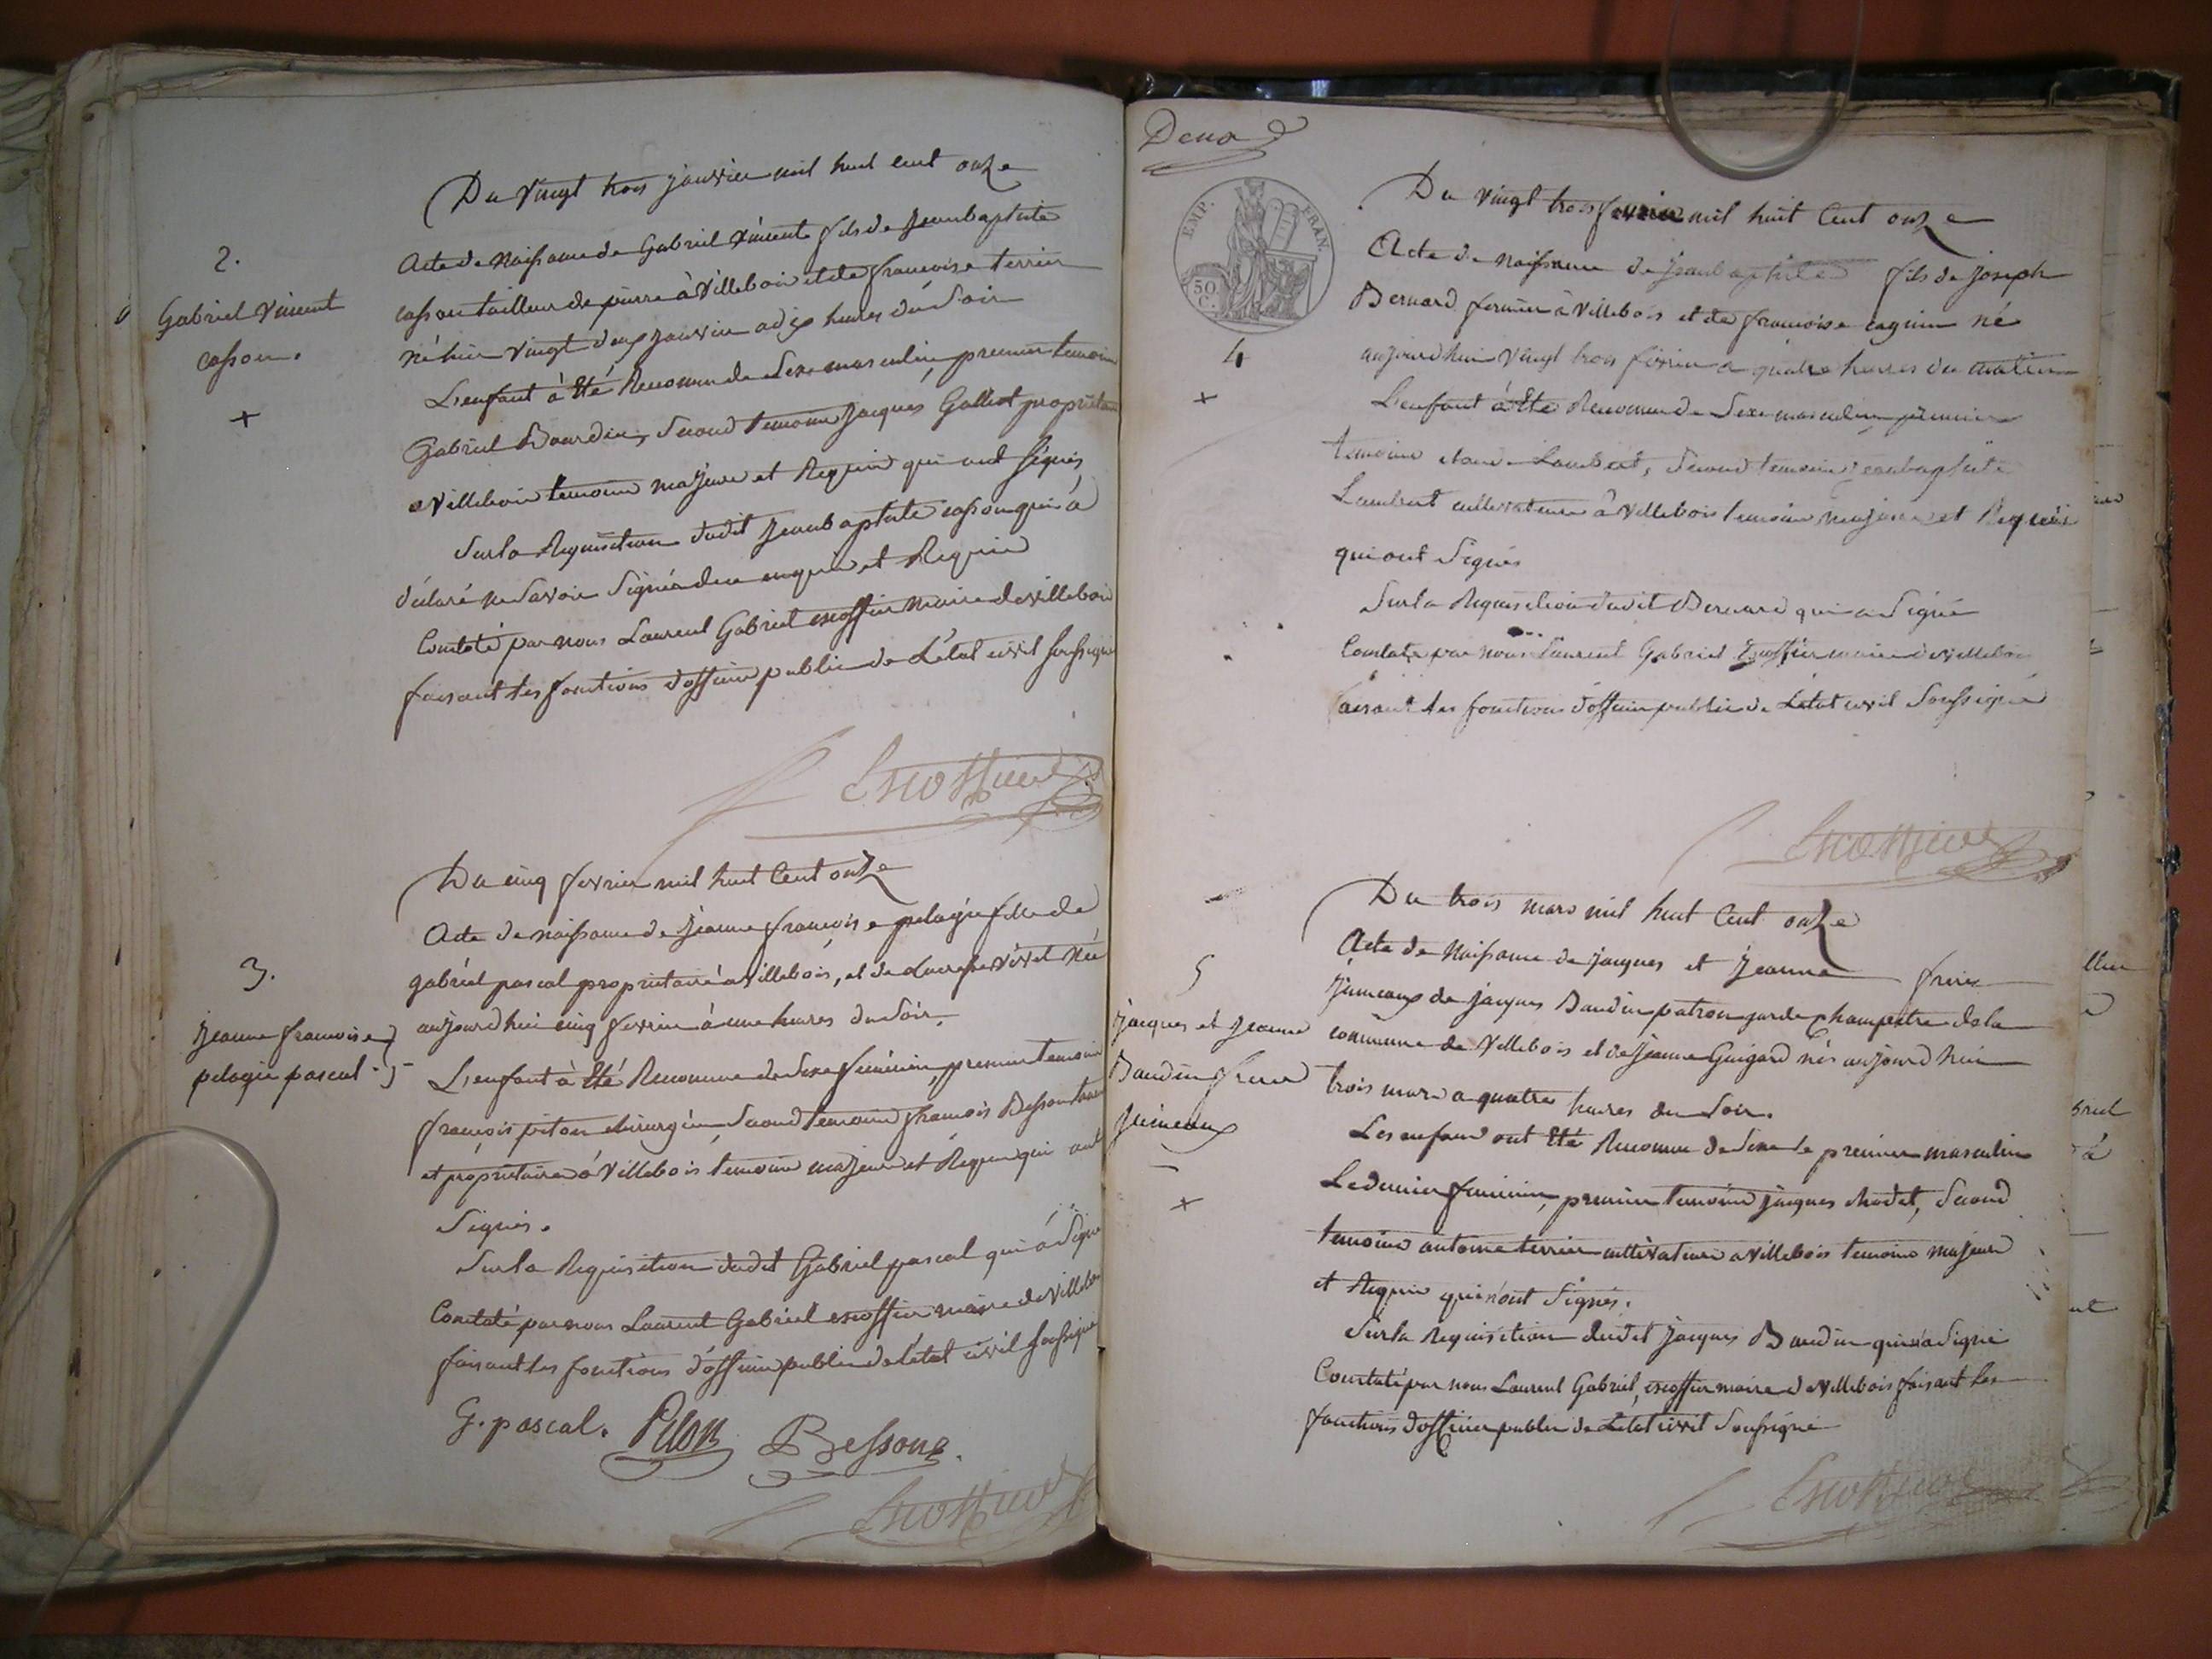 Du vingt trois janvier mil huit cent onze
2.
Gabriel Vincent
casson.
+
Acte de Naissance de Gabriel Vincent fils de Jeanbaptiste
casson tailleur de pierre à Villebois et de francoise terrier
né hier vingt deux janvier a dix heures du Soir
L'enfant à Eté Reconnu de Sexe masculin, premier temoin
Gabriel Bourdin, Second temoin Jacques Galliot proprietaire
a Villebois temoins majeurs et Requis qui ont signés
Sur la Requisition dudit Jeanbaptiste casson qui a
déclaré ne Savoir Signer de ce enquis et Requis
Constaté par nous Laurent Gabriel escoffier Maire de villebois
faisant les fonctions d'officier public de L'état civil soussigné
Escoffier
Du cinq fevrier mil huit Cent onze
3.
jeanne francoise
pelagie pascal
Acte de naissance de jeanne francoise pelagie fille de
gabriel pascal proprietaire a villebois, et de Lucresse vivet Née
aujourd'hui cinq fevrier à une heures du Soir.
L'enfant à Eté Reconnu de Sexe feminin, premier temoin
francois piton chirurgien, Second temoin francois Besson
et proprietaire à Villebois temoins majeurs et Requis qui ont
Signés.
Sur la Requisition dudit Gabriel pascal qui à Signé
Constaté par nous Laurent Gabriel escoffier maire de Villebois
faisant les fonctions d'officier public de l'état civil soussigné
G. pascal. Piton Bessons.
Escoffier
EMP. FRAN.
50 C.
Du vingt trois fevrier mil huit Cent onze
4
+
Acte de naissance de jeanbaptiste fils de joseph
Bernard fermier à Villebois et de francoise né
aujourd'hui vingt trois fevrier a quatre heures du matin
L'enfant à Eté Reconnu de Sexe masculin, premier
temoin claude Lambert, Second temoin jeanbaptiste
Lambert cultivateurs à Villebois temoins majeurs et Requis
qui ont Signés
Sur la Requisition dudit Bernard qui a Signé
Constaté par nous Laurent Gabriel Escoffier maire de villebois
faisant les fonctions d'officier public de L'état civil Soussigné
Escoffier
Du trois mars mil huit Cent onze
5
jacques et jeanne
Baudin freres
jumeaux
+
Acte de Naissance de jacques et jeanne freres
jumeaux de jacques Baudin patron garde champetre de la
commune de Villebois et de jeanne Guigard nés aujourd'hui
trois mars a quatre heures du Soir.
Les enfans ont Eté Reconnu de Sexe le premier masculin
Le dernier feminin, premier temoin jacques chodet, Second
temoin antoine terrier cultivateurs a villebois temoins majeurs
et Requis qui n'ont Signés.
Sur la Requisition dudit jacques Baudin qui n'a Signé
Constaté par nous Laurent Gabriel, escoffier maire de Villebois faisant les
fonctions d'officier public de L'etat civil Soussigné
Escoffier